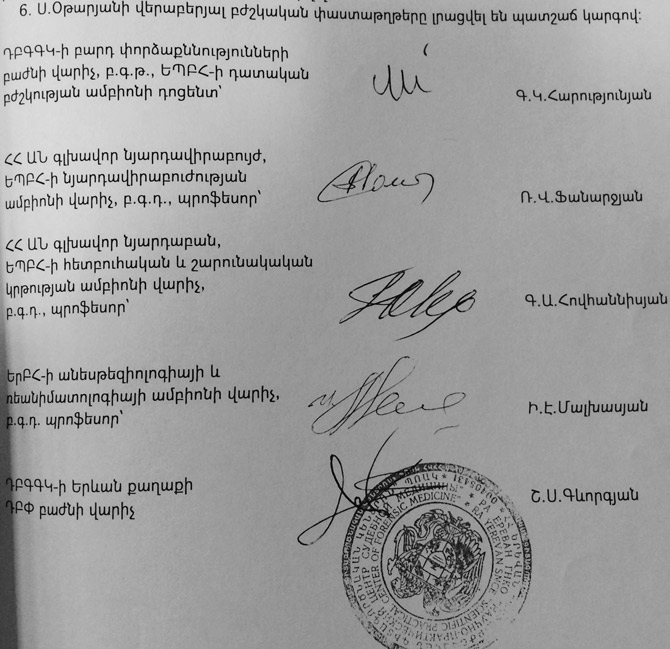 6. Ս.Օթարյանի վերաբերյալ բժշկական փաստաթղթերը լրացվել են պատշաճ կարգով:
ԴԲԳԳԿ-ի բարդ փորձաքննությունների
բաժնի վարիչ, բ.գ.թ., ԵՊԲՀ-ի դատական
բժշկության ամբիոնի դոցենտ՝
Գ.Կ.Հարությունյան
ՀՀ ԱՆ գլխավոր նյարդավիրաբույժ,
ԵՊԲՀ-ի նյարդավիրաբուժության
ամբիոնի վարիչ, բ.գ.դ., պրոֆեսոր՝
Ռ.Վ.Ֆանարջյան
ՀՀ ԱՆ գլխավոր նյարդաբան,
ԵՊԲՀ-ի հետբուհական և շարունակական
կրթության ամբիոնի վարիչ,
բ.գ.դ., պրոֆեսոր՝
Գ.Ա.Հովհաննիսյան
ԵրԲՀ-ի անեսթեզիոլոգիայի և
ռեանիմատոլոգիայի ամբիոնի վարիչ,
բ.գ.դ. պրոֆեսոր՝
Ի.Է.Մալխասյան
ԴԲԳԳԿ-ի Երևան քաղաքի
ԴԲՓ բաժնի վարիչ
Շ.Ս.Գևորգյան
CENTER OF FORENSIC MEDICINE" RA YEREVAN SNCE SCIENTIFIC PRACTICAL